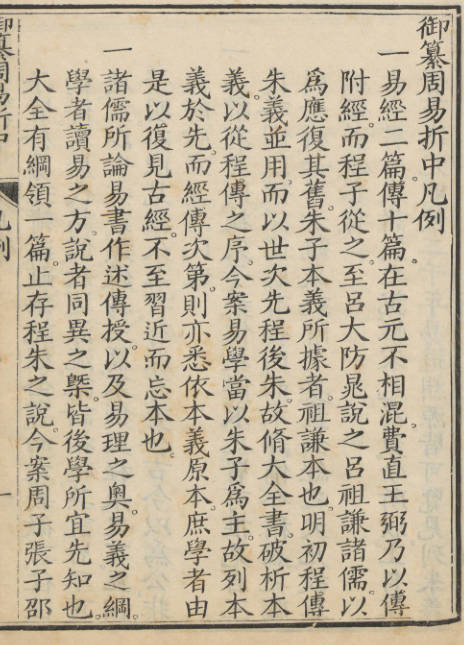 御纂周易折中凡例
一易經二篇。傳十篇。在古元不相混。費直王弼乃以傳
附經。而程子從之。至呂大防晁說之呂祖謙諸儒。以
爲應復其舊。朱子本義所據者。祖謙本也。明初程傳
朱義並用。而以世次先程後朱。故脩大全書。破析本
義。以從程傳之序。今案易學當以朱子爲主。故列本
義於先。而經傳次第。則亦悉依本義原本。庶學者由
是以復見古經。不至習近而忘本也。
一諸儒所論易書作述傳授。以及易理之奧。易義之綱。
學者讀易之方。說者同異之槩。皆後學所宜先知也。
大全有綱領一篇。止存程朱之說。今案周子張子邵
御纂周易折中
凡例
一